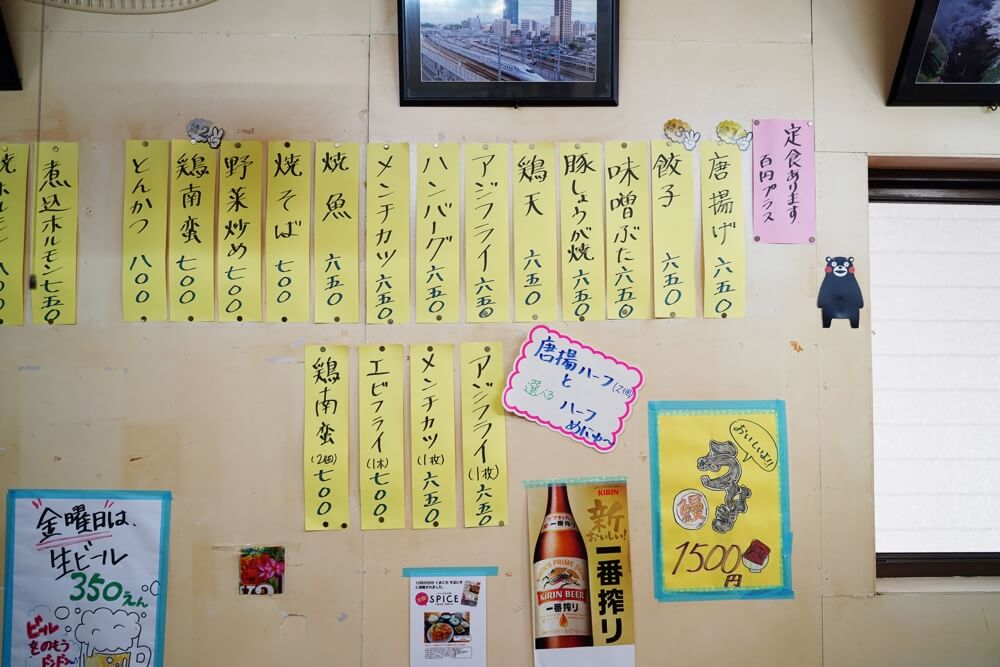 定食あります
百円プラス
唐揚げ 六五〇
餃子 六五〇
味噌ぶた 六五〇
豚しょうが焼 六五〇
鶏天 六五〇
アジフライ 六五〇
ハンバーグ 六五〇
メンチカツ 六五〇
焼魚 六五〇
焼そば 七〇〇
野菜炒め 七〇〇
鶏南蛮 七〇〇
とんかつ 八〇〇
煮込ホルモン 七五〇
唐揚ハーフ(2個)
と
選べる
ハーフ
めにゅ〜
アジフライ(1枚) 六五〇
メンチカツ(1枚) 六五〇
エビフライ(1本) 七〇〇
鶏南蛮(2個) 七〇〇
おいしいよ!!
うなぎ
鰻
1500円
KIRIN
新
おいしい!
一番搾り
KIRIN BEER
一番搾り
SPICE
金曜日は、
生ビール
350えん
ビール
をのもう
ドンドン